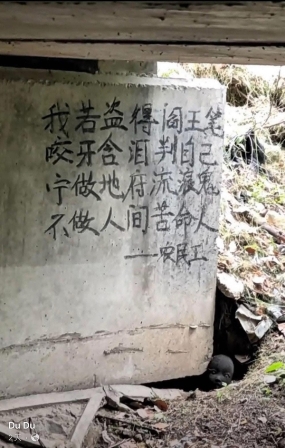 我若盗得阎王笔
咬牙含泪判自己
宁做地府流浪鬼
不做人间苦命人
——农民工
Du Du